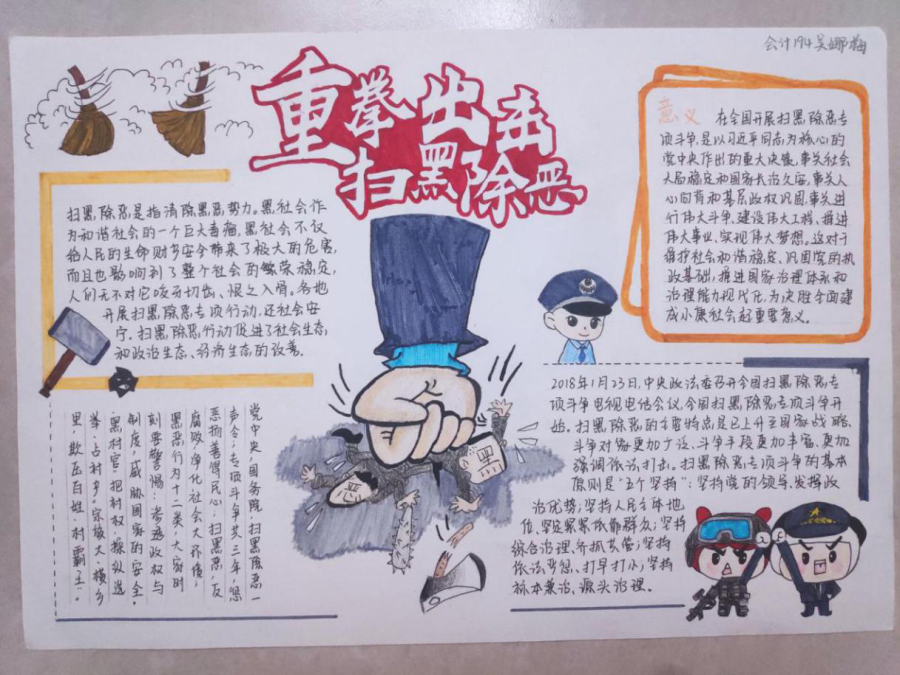 会计194吴娜梅
重拳出击
扫黑除恶
扫黑除恶是指清除黑恶势力。黑社会作
为和谐社会的一个巨大毒瘤,黑社会不仅
给人民的生命财产安全带来了极大的危害,
而且也影响到了整个社会的繁荣稳定,
人们无不对它咬牙切齿、恨之入骨。各地
开展扫黑除恶专项行动,还社会安
宁。扫黑除恶行动促进了社会生态
和政治生态、经济生态的改善。
意义
在全国开展扫黑除恶专
项斗争,是以习近平同志为核心的
党中央作出的重大决策,事关社会
大局稳定和国家长治久安,事关人
心向背和基层政权巩固,事关进
行伟大斗争,建设伟大工程,推进
伟大事业,实现伟大梦想。这对于
维护社会和谐稳定、巩固党的执
政基础,推进国家治理体系和
治理能力现代化,为决胜全面建
成小康社会起重要意义。
党中央,国务院,扫黑除恶一
声令,专项斗争共三年,惩
恶扬善得民心,扫黑恶,反
腐败,净化社会大环境,
黑恶行为十二类,大家时
刻要警惕:渗透政权与
制度,威胁国家的安全。
黑村官,把村权,操纵选
举,占村乡。宗族大,横乡
里,欺压百姓,村霸王。
2018年1月23日,中央政法委召开全国扫黑除恶专
项斗争电视电话会议,全国扫黑除恶专项斗争开
始。扫黑除恶的主要特点是已上升至国家战略,
斗争对象更加广泛、斗争手段更加丰富、更加
强调依法打击。扫黑除恶专项斗争的基本
原则是"五个坚持":坚持党的领导、发挥政
治优势;坚持人民主体地
位、坚定紧紧依靠群众;坚持
综合治理、齐抓共管;坚持
依法严惩、打早打小;坚持
标本兼治、源头治理。
恶
黑